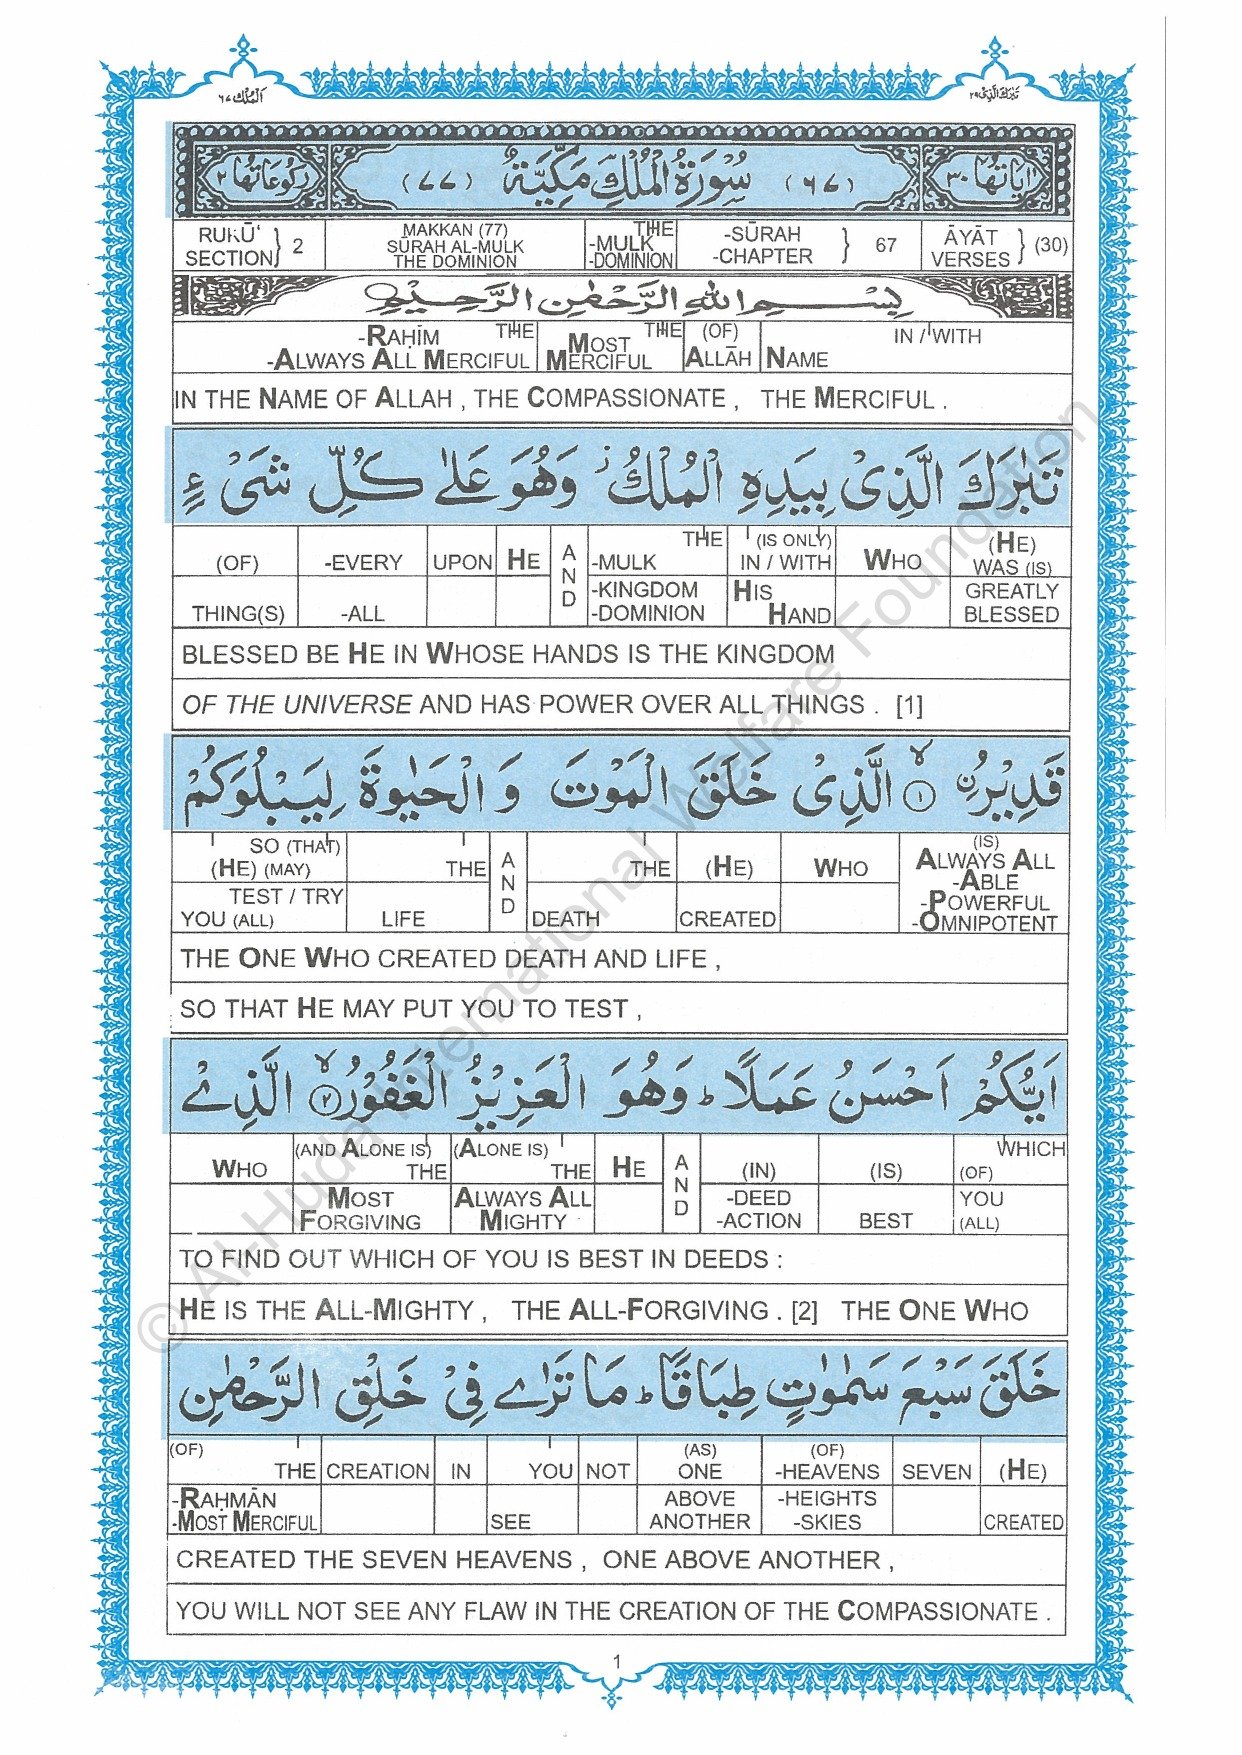 اَلْمُلْك ٦٧
تَبٰرَكَ الَّذِىْ ٢٩
اٰيَاتُهَا ٣٠
(٦٧) سُوْرَةُ الْمُلْكِ مَكِّيَّةٌ (٧٧)
رُكُوْعَاتُهَا ٢
RUKŪ‘ SECTION } 2
MAKKAN (77) SŪRAH AL-MULK THE DOMINION
THE -MULK -DOMINION
-SŪRAH -CHAPTER } 67
ĀYĀT VERSES } (30)
بِسْمِ اللهِ الرَّحْمٰنِ الرَّحِيْمِ
-RAḤĪM THE -ALWAYS ALL MERCIFUL
THE MOST MERCIFUL
(OF) ALLĀH
NAME IN / WITH
IN THE NAME OF ALLAH , THE COMPASSIONATE , THE MERCIFUL .
تَبٰرَكَ الَّذِىْ بِيَدِهِ الْمُلْكُ ۡ وَهُوَ عَلٰى كُلِّ شَىْءٍ
(OF) -EVERY UPON HE AND -MULK THE (IS ONLY) IN / WITH WHO (HE) WAS (IS)
THING(S) -ALL -KINGDOM -DOMINION HIS HAND GREATLY BLESSED
BLESSED BE HE IN WHOSE HANDS IS THE KINGDOM
OF THE UNIVERSE AND HAS POWER OVER ALL THINGS . [1]
قَدِيْرُنِ ۙ ١ الَّذِىْ خَلَقَ الْمَوْتَ وَ الْحَيٰوةَ لِيَبْلُوَكُمْ
SO (THAT) (HE) (MAY) THE AND THE (HE) WHO (IS) ALWAYS ALL -ABLE -POWERFUL -OMNIPOTENT
TEST / TRY YOU (ALL) LIFE DEATH CREATED
THE ONE WHO CREATED DEATH AND LIFE ,
SO THAT HE MAY PUT YOU TO TEST ,
اَيُّكُمْ اَحْسَنُ عَمَلًا ؕ وَهُوَ الْعَزِيْزُ الْغَفُوْرُ ۙ ٢ الَّذِىْ
WHO (AND ALONE IS) THE (ALONE IS) THE HE AND (IN) (IS) WHICH (OF)
MOST FORGIVING ALWAYS ALL MIGHTY -DEED -ACTION BEST YOU (ALL)
TO FIND OUT WHICH OF YOU IS BEST IN DEEDS :
HE IS THE ALL-MIGHTY , THE ALL-FORGIVING . [2] THE ONE WHO
خَلَقَ سَبْعَ سَمٰوٰتٍ طِبَاقًا ؕ مَا تَرٰى فِىْ خَلْقِ الرَّحْمٰنِ
(OF) THE CREATION IN YOU NOT (AS) ONE (OF) -HEAVENS SEVEN (HE)
-RAḤMĀN -MOST MERCIFUL SEE ABOVE ANOTHER -HEIGHTS -SKIES CREATED
CREATED THE SEVEN HEAVENS , ONE ABOVE ANOTHER ,
YOU WILL NOT SEE ANY FLAW IN THE CREATION OF THE COMPASSIONATE .
1
© Al-Huda International Welfare Foundation